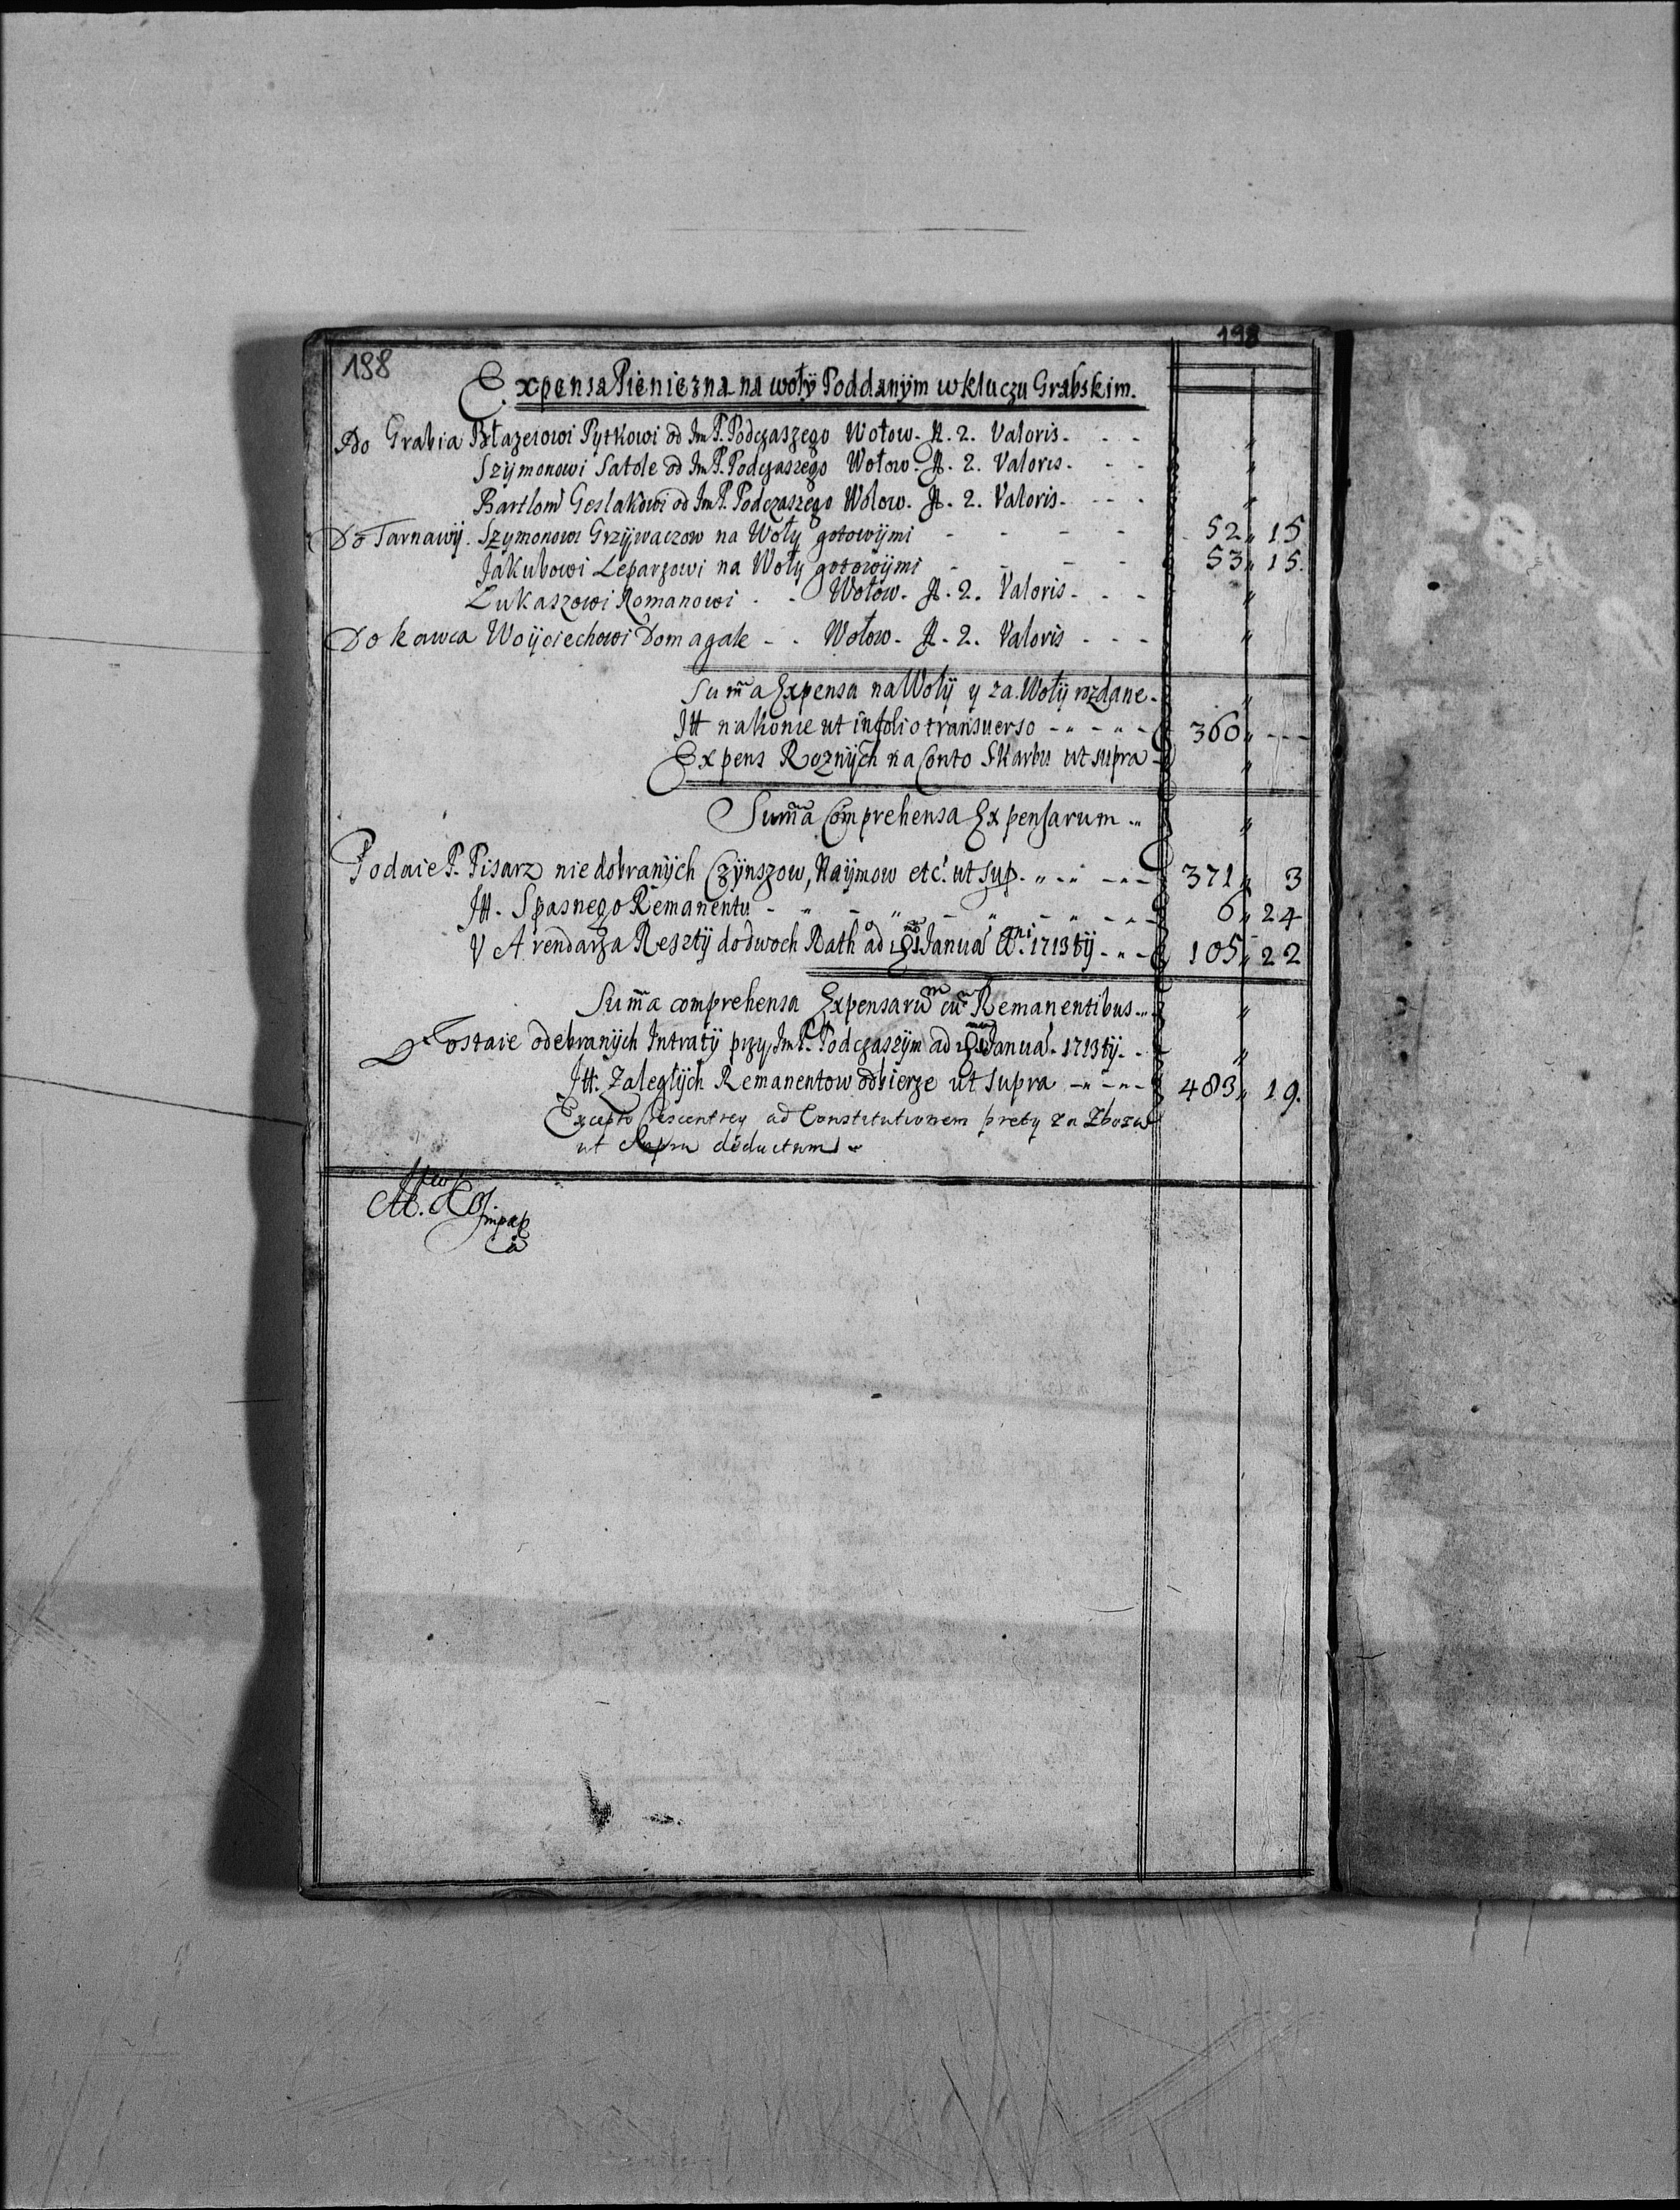 198
188
Expensa Pieniezna na woły Poddanÿm w kluczu Grabskim.
Do Grabia Błazeiowi Pytkowi od Jm P. Podczaszego Wołow. N. 2. Valoris. - - "
Szÿmonowi Satole od Jm P. Podczaszego Wołow. N. 2. Valoris. - - "
Bartłom Geslakowi od Jm P. Podczaszego Wołow. N. 2. Valoris. - - - "
Do Tarnawÿ. Szymonowi Grzÿwaczow na Woły gotowÿmi - - - - 52 " 15
Jakubowi Leparzowi na Woły gotowÿmi - - - - 53 " 15.
Łukaszowi Romanowi - - Wołow. N. 2. Valoris - - - "
Do kawca Woÿciechowi Domagale - - Wołow. N. 2. Valoris - - - "
Summa Expensa na Wołÿ y za Wołÿ rozdane - "
Itt na konie ut in folio transuerso - " - " - 360 " - - -
Expens Roznÿch na Conto Skarbu ut supra - "
Summa Comprehensa Expensarum " "
Podaie P. Pisarz nie dobranÿch Czÿnszow, Naÿmow etc. ut sup. " - " - " - 371 " 3
Itt. Spasnego Remanentu - " - " - " - " - " - 6 " 24
V Arendarza Resztÿ do dwoch Rath ad Janua 1713 tÿ - " - 105 " 22
Summa comprehensa Expensarum cum Remanentibus " "
Zostaie odebranÿch Intratÿ przy Jm P. Podczaszÿm ad Janua. 1713 tÿ - - "
Itt. Zaległÿch Remanentow odbierze ut supra - " - " - 483 " 19.
Excepto Crescentiey ad Constitutionem prety za Zboza
ut supra deductum "